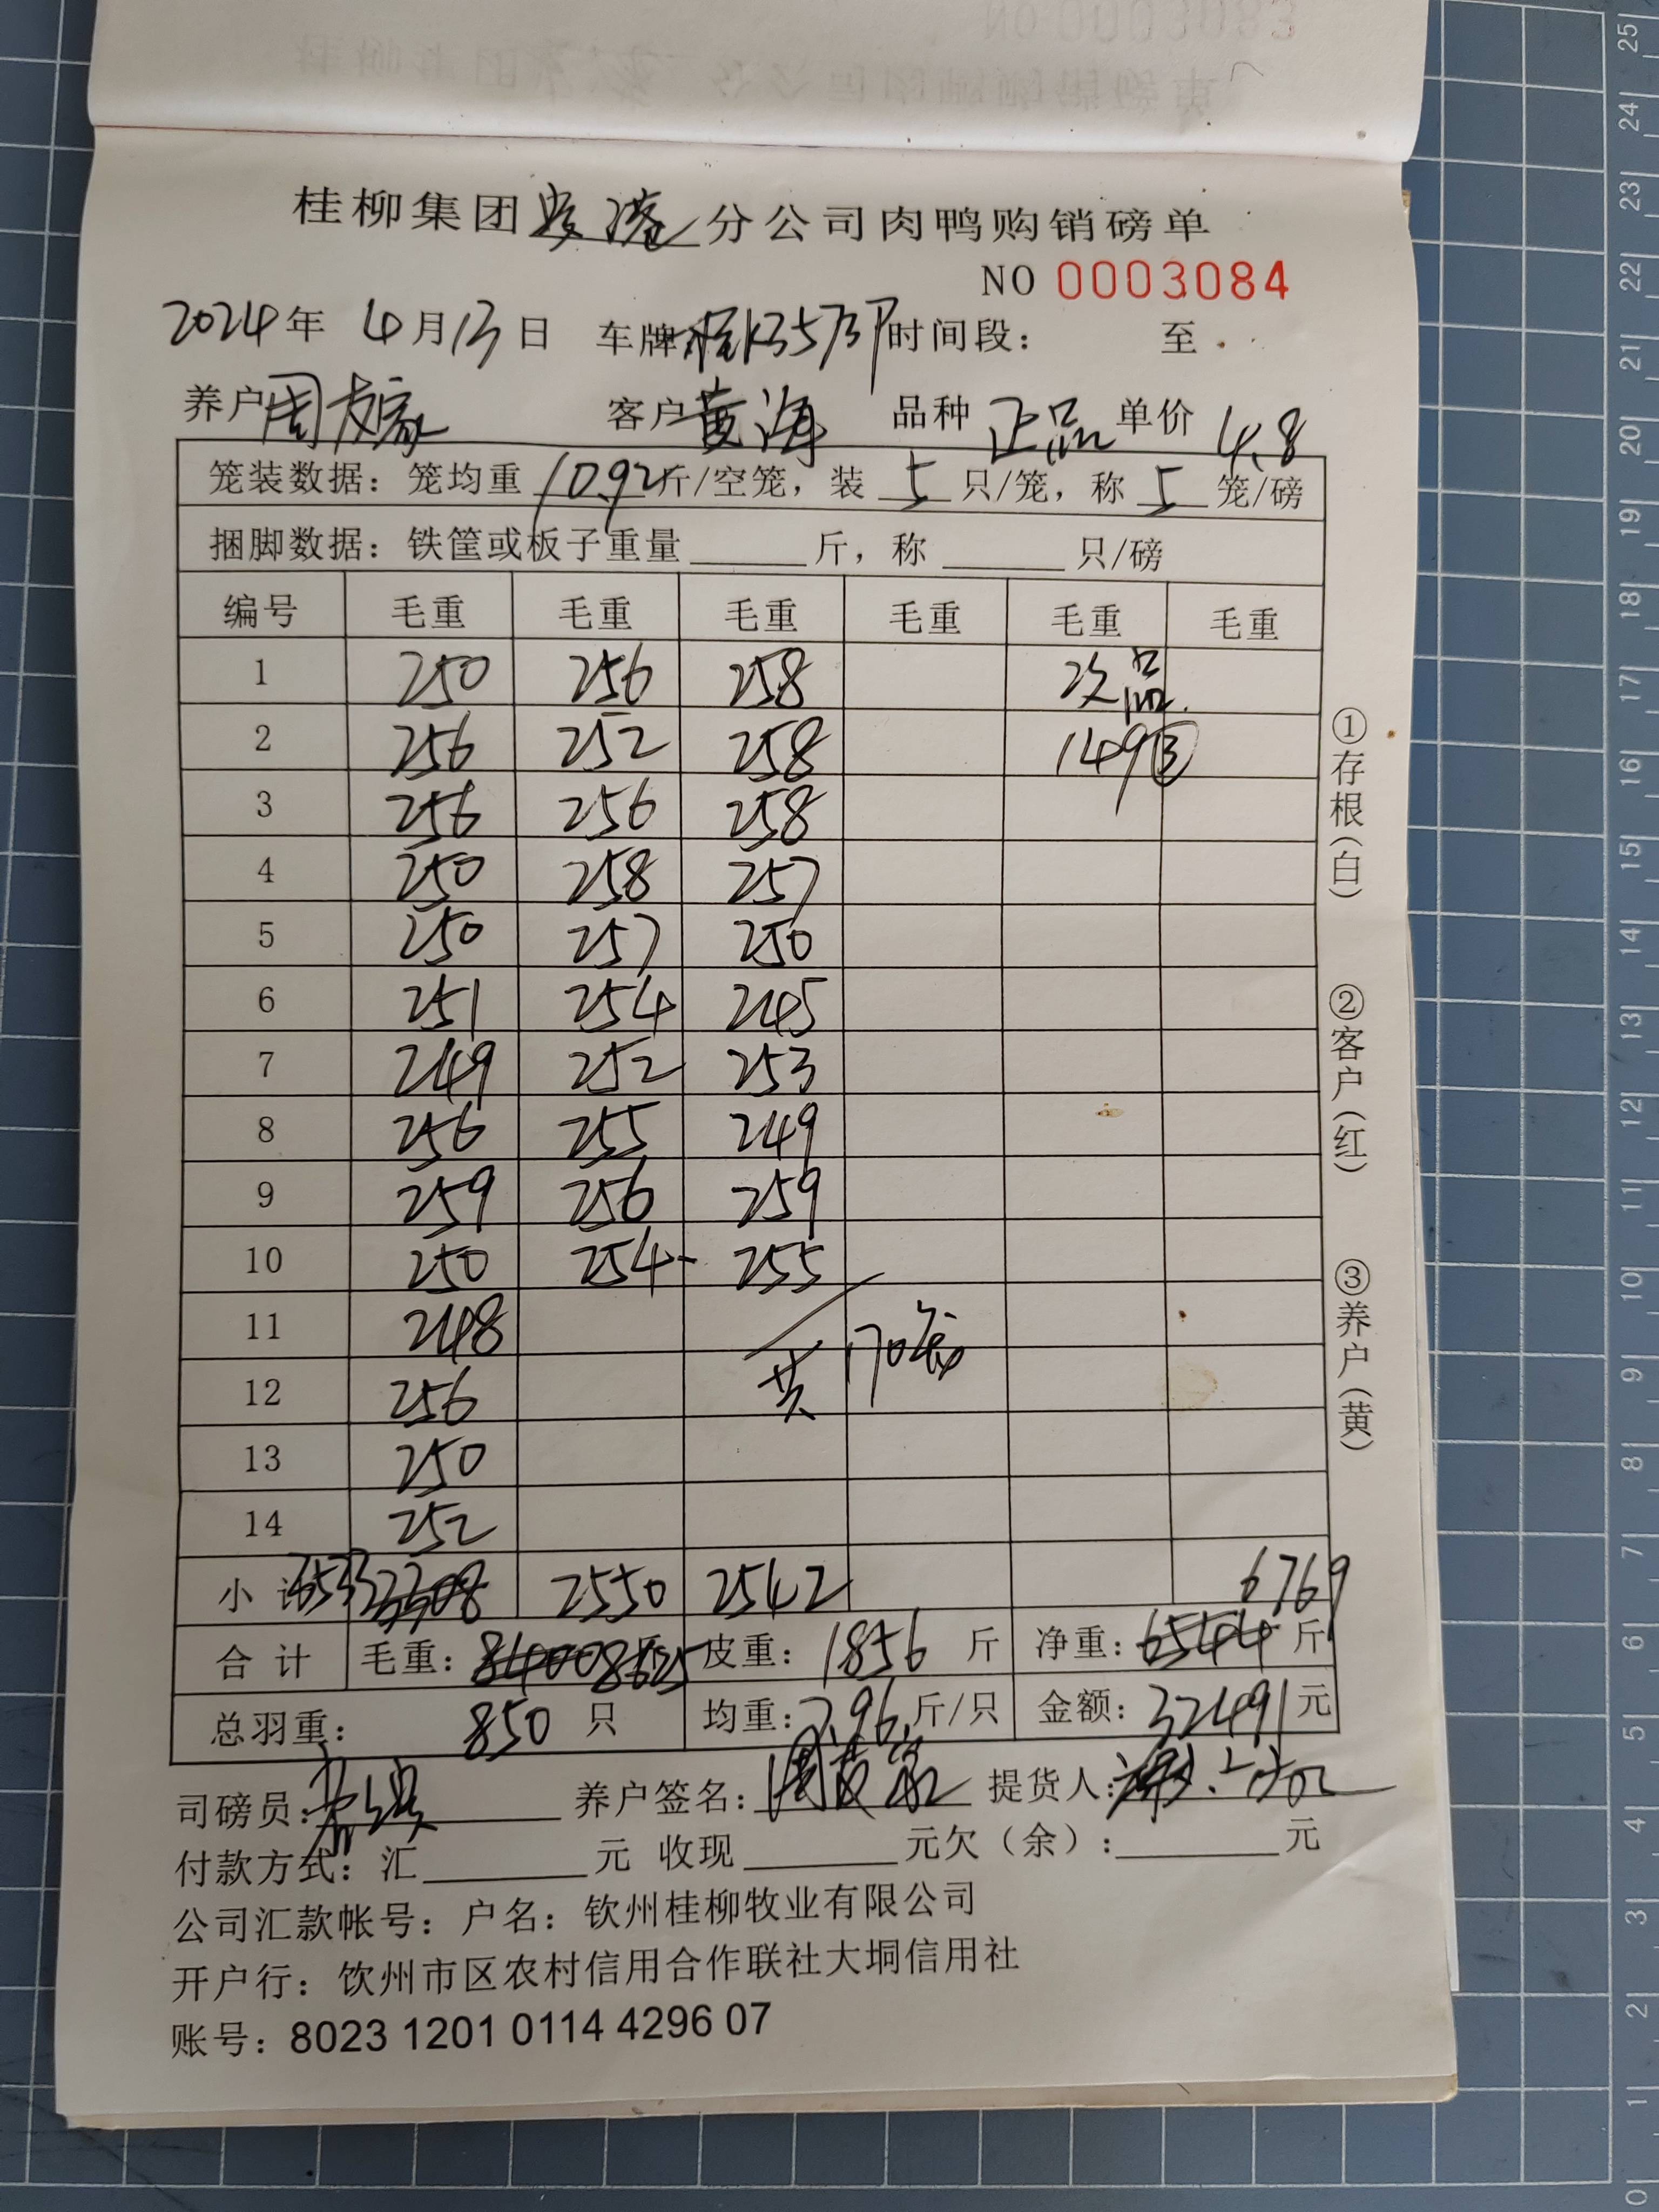 桂柳集团分公司肉鸭购销磅单
NO 0003084
2024年 4月13日 车牌 桂K3573P 时间段： 至
养户 周友家 客户 黄海 品种 正品 单价 4.8
笼装数据：笼均重 10.92 斤/空笼，装 5 只/笼，称 5 笼/磅
捆脚数据：铁筐或板子重量______斤，称______只/磅
编号 毛重 毛重 毛重 毛重 毛重 毛重
1 250 256 258 次品
2 256 252 258 149③
3 256 256 258
4 250 258 257
5 250 257 250
6 251 254 245
7 249 252 253
8 256 255 249
9 259 256 259
10 250 254 255
11 248 共170笼
12 256
13 250
14 252
小计 3533 2550 2542 6769
合计 毛重：8625 皮重：1856 斤 净重：6544 斤
总羽重： 850 只 均重：7.96 斤/只 金额：32491元
司磅员： 养户签名：周友家 提货人：
付款方式：汇______元 收现______元欠（余）：______元
公司汇款帐号：户名：钦州桂柳牧业有限公司
开户行：饮州市区农村信用合作联社大垌信用社
账号：8023 1201 0114 4296 07
①存根（白）
②客户（红）
③养户（黄）
25
24
23
22
21
20
19
18
17
16
15
14
13
12
11
10
9
8
7
6
5
4
3
2
1
0